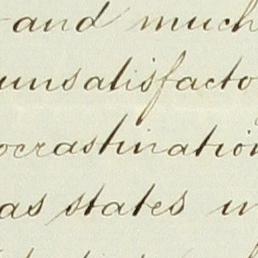 and much
unsatisfacto
ocrastination
as states